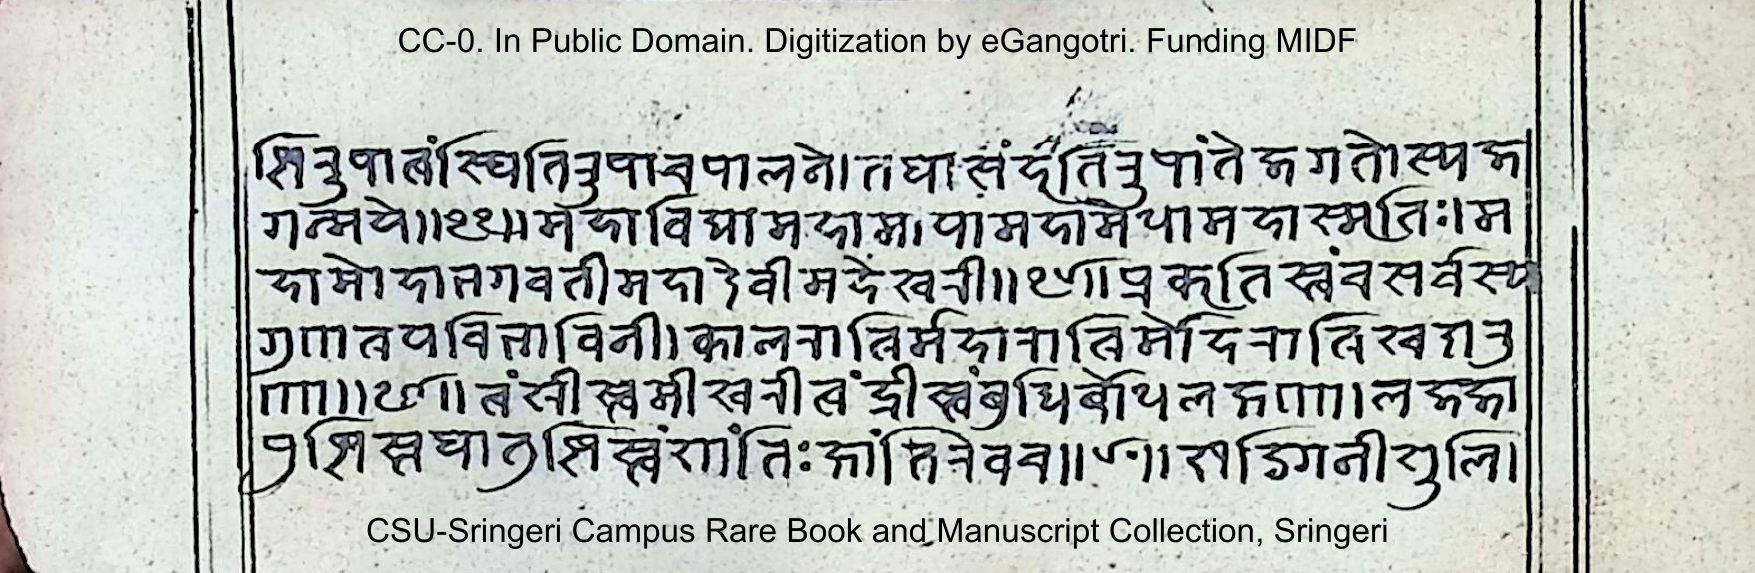 CC-0. In Public Domain. Digitization by eGangotri. Funding MIDF
ष्टिरुपात्वंस्थितिरुपाचपालने।तथासंहृतिरुपांतेजगतोस्यज
गन्मये॥५७॥महाविद्यामहामायामहामेधामहास्मृतिः।म
हामोहाभगवतीमहादेवीमहेश्वरी॥५८॥प्रकृतिस्त्वंचसर्वस्य
गुणात्रयविभाविनी।कालरात्रिर्महारात्रिर्मोहरात्रिश्चदारु
णा॥५९॥त्वंश्रीस्त्वमीश्वरीत्वंह्रीस्त्वंबुधिर्बोधलक्षणा।लज्जा
पुष्टिस्तथातुष्टिस्त्वंशांतिःक्षांतिरेवच॥६०॥खड्गिनीशुलि
CSU-Sringeri Campus Rare Book and Manuscript Collection, Sringeri